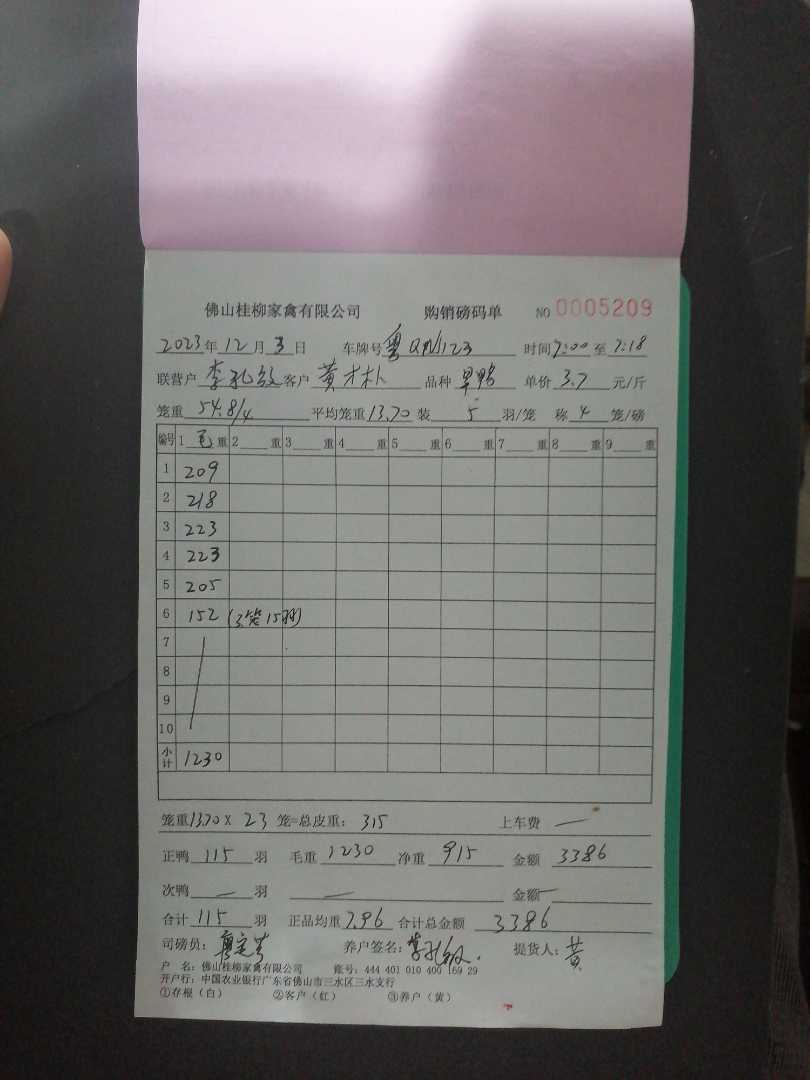 佛山桂柳家禽有限公司 购销磅码单 NO 0005209
2023年12月3日 车牌号 粤QN123 时间 7:00 至 7:18
联营户 李孔 客户 黄才朴 品种 旱鸭 单价 3.7 元/斤
笼重 54.8/4 平均笼重 13.70 装 5 羽/笼 称 4 笼/磅
编号 1 毛 重 2 重 3 重 4 重 5 重 6 重 7 重 8 重 9 重
1 209
2 218
3 223
4 223
5 205
6 152 (3笼15羽)
7
8
9
10
小计 1230
笼重 13.70 X 23 笼=总皮重: 315 上车费 —
正鸭 115 羽 毛重 1230 净重 915 金额 3386
次鸭 — 羽 — 金额 —
合计 115 羽 正品均重 7.96 合计总金额 3386
司磅员: 养户签名: 李孔 提货人: 黄
户 名: 佛山桂柳家禽有限公司 账号: 444 401 010 400 169 29
开户行: 中国农业银行广东省佛山市三水区三水支行
①存根(白) ②客户(红) ③养户(黄)